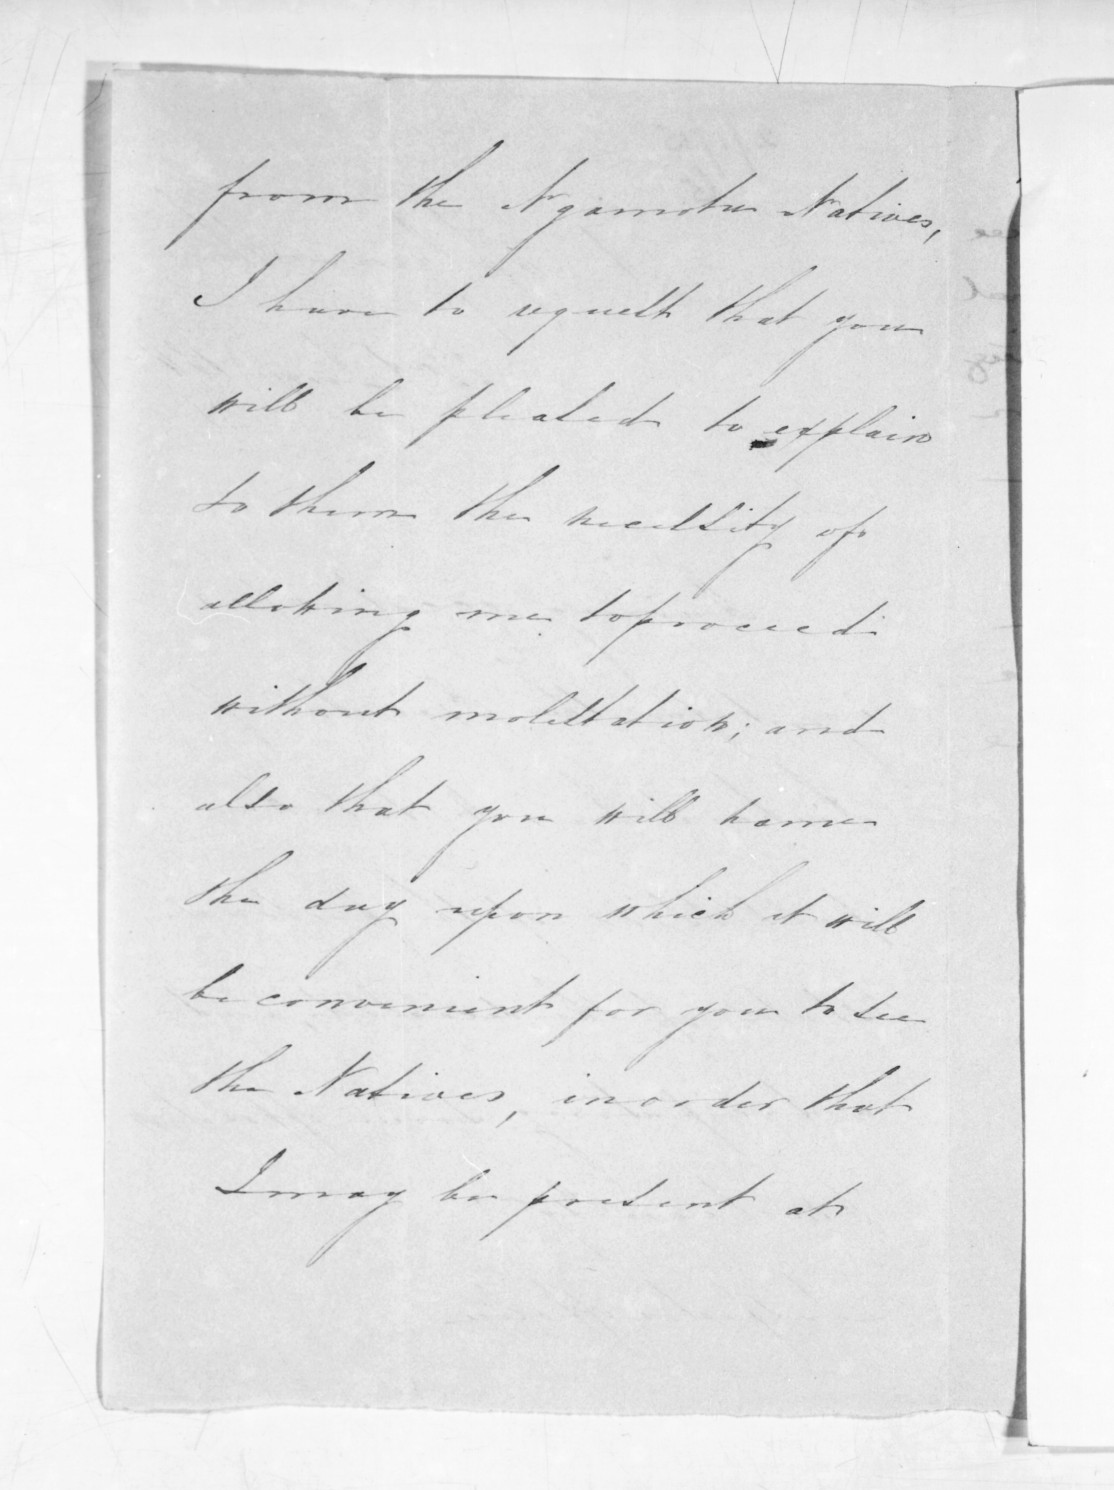 from the Ngamotu Natives,
I have to request that you
will be pleased to explain
to them the necessity of
allowing me to proceed
without molestation; and
also that you will name
the day upon which it will
be convenient for you to see
the Natives, in order that
I may be present at